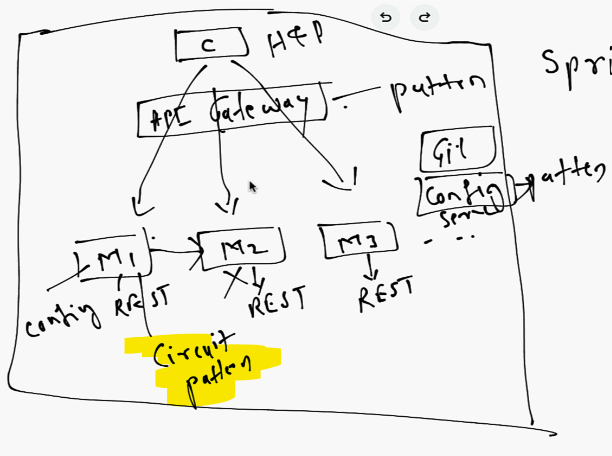 C
Spri
API Gateway
pattern
Git
Config
patten
M1
M2
M3
config
REST
REST
REST
Circuit
pattern